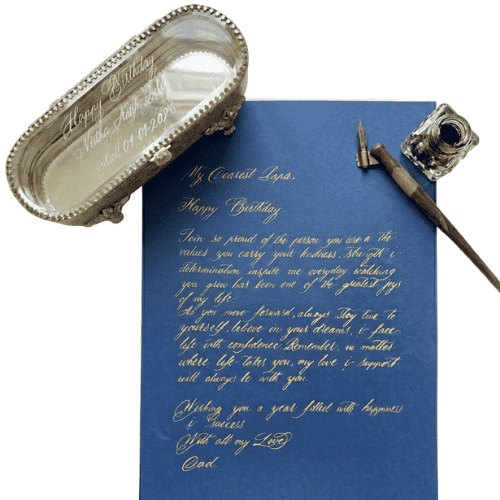 Happy Birthday
01-01-2020
My Dearest Papa,
Happy Birthday
I am so proud of the person you are & the
values you carry your kindness, strength &
determination inspire me everyday watching
you grow has been one of the greatest joys
of my life.
As you move forward, always stay true to
yourself, believe in your dreams, & face
life with confidence. Remember, no matter
where life takes you, my love & support
will always be with you.
Wishing you a year filled with happiness
& success
With all my Love
Dad